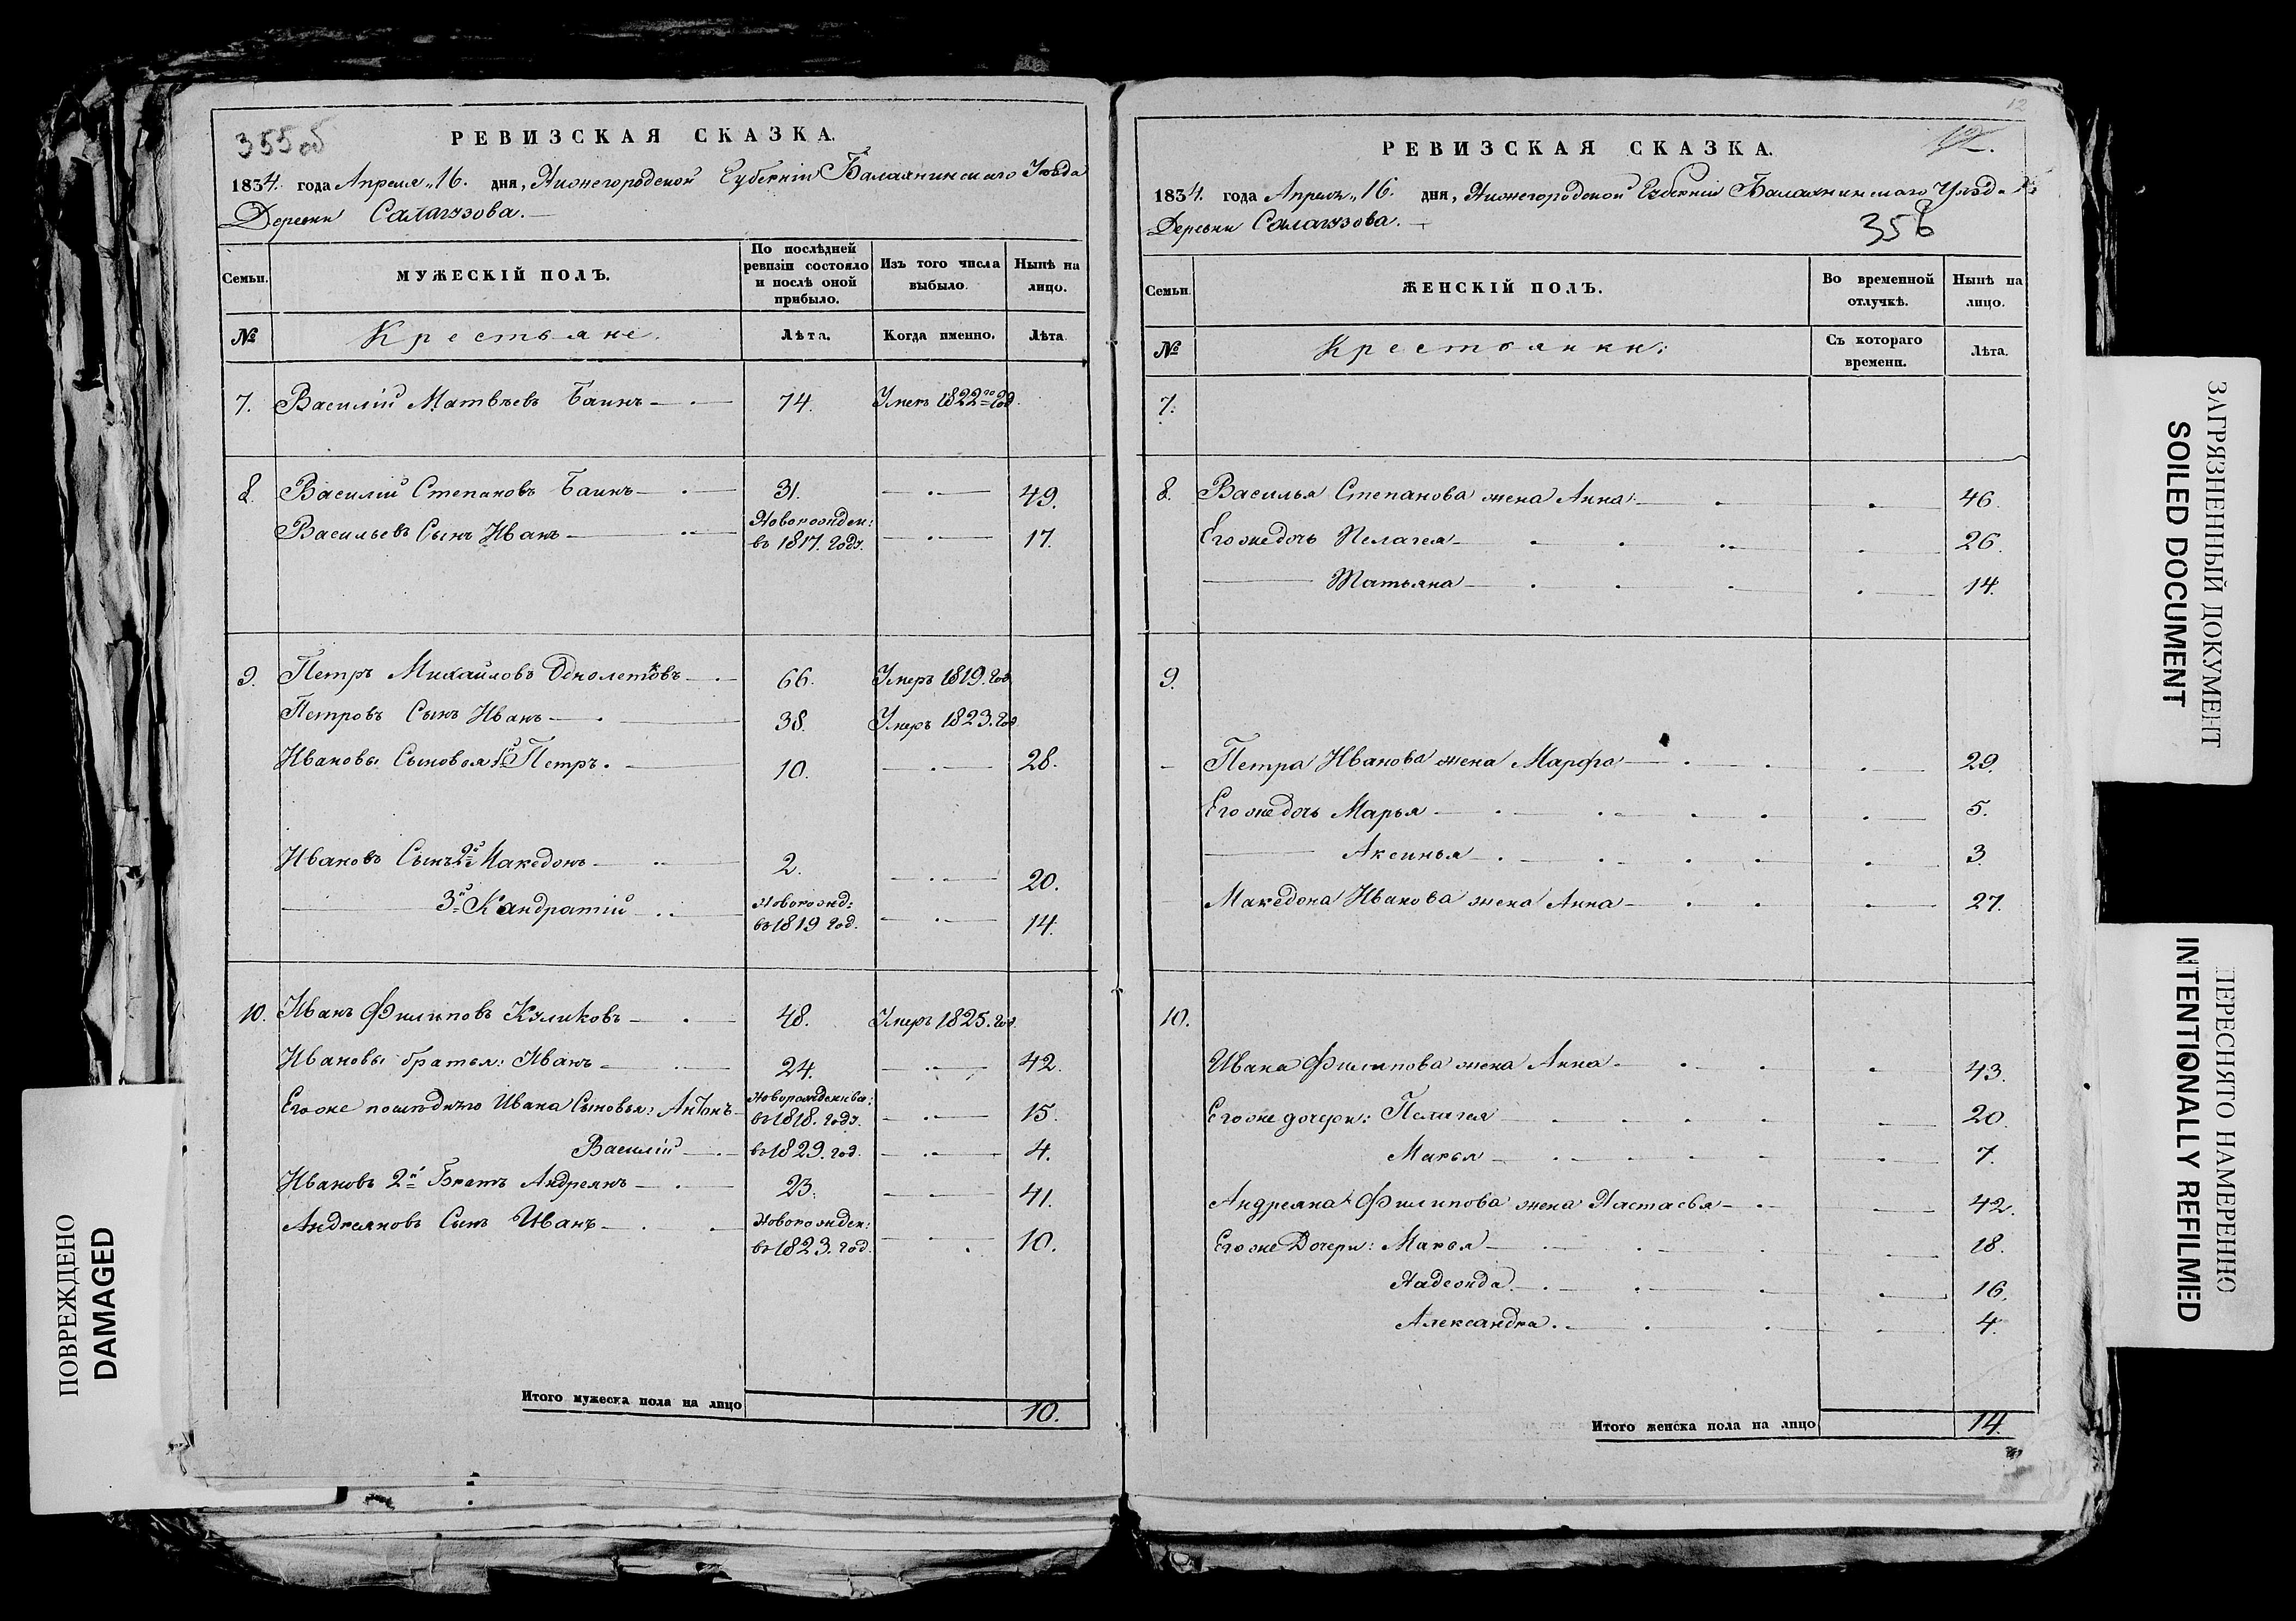 355 об
РЕВИЗСКАЯ СКАЗКА.
1834. года Апреля „16. дня, Нижегородской Губерніи Балахнинскаго Уѣзда
Деревни Салагузова.
Семьи. МУЖЕСКІЙ ПОЛЪ. По послѣдней ревизіи состояло и послѣ оной прибыло. Изъ того числа выбыло. Нынѣ на лицо.
№ Крестьяне. Лѣта. Когда именно. Лѣта.
7. Василій Матвѣевъ Баинъ 74. Умеръ 1822го год.
8. Василій Степановъ Баинъ 31. 49.
Васильевъ Сынъ Иванъ Новорожден: въ 1817. году. 17.
9. Петръ Михайловъ 66. Умеръ 1819. год.
Петровъ Сынъ Иванъ 38. Умеръ 1823. год.
Ивановы Сыновья 1й Петръ. 10. 28.
Ивановъ Сынъ 2й Македонъ 2. 20.
3й Кандратій Новорожд: въ 1819 год. 14.
10. Иванъ Филиповъ Куликовъ 48. Умеръ 1825. год.
Ивановы братья: Иванъ 24. 42.
Его же последнѣго Ивана Сыновья: Антонъ Новорожденные: въ 1818. году. 15.
Василій въ 1829. год. 4.
Ивановъ 2й Братъ Андреянъ 23. 41.
Андреяновъ Сынъ Иванъ Новорожден: въ 1823. год. 10.
Итого мужеска пола на лицо 10.
12
12.
РЕВИЗСКАЯ СКАЗКА.
1834. года Апреля „16. дня, Нижегородской Губерніи Балахнинскаго Уѣзда
Деревни Салагузова.
356
Семьи. ЖЕНСКІЙ ПОЛЪ. Во временной отлучкѣ. Нынѣ на лицо.
№ Крестьянки: Съ котораго времени. Лѣта.
7.
8. Василья Степанова жена Анна 46.
Его же дочь Пелагея 26.
Татьяна 14.
9.
Петра Иванова жена Марфа 29.
Его же дочь Марья 5.
Аксинья 3.
Македона Иванова жена Анна 27.
10.
Ивана Филипова жена Анна 43.
Его же дочери: Пелагея 20.
Марья 7.
Андреяна Филипова жена Настасья 42.
Его же Дочери: Марья 18.
Надежда 16.
Александра. 4.
Итого женска пола на лицо 14.
ПОВРЕЖДЕНО
DAMAGED
ЗАГРЯЗНЕННЫЙ ДОКУМЕНТ
SOILED DOCUMENT
ПЕРЕСНЯТО НАМЕРЕННО
INTENTIONALLY REFILMED